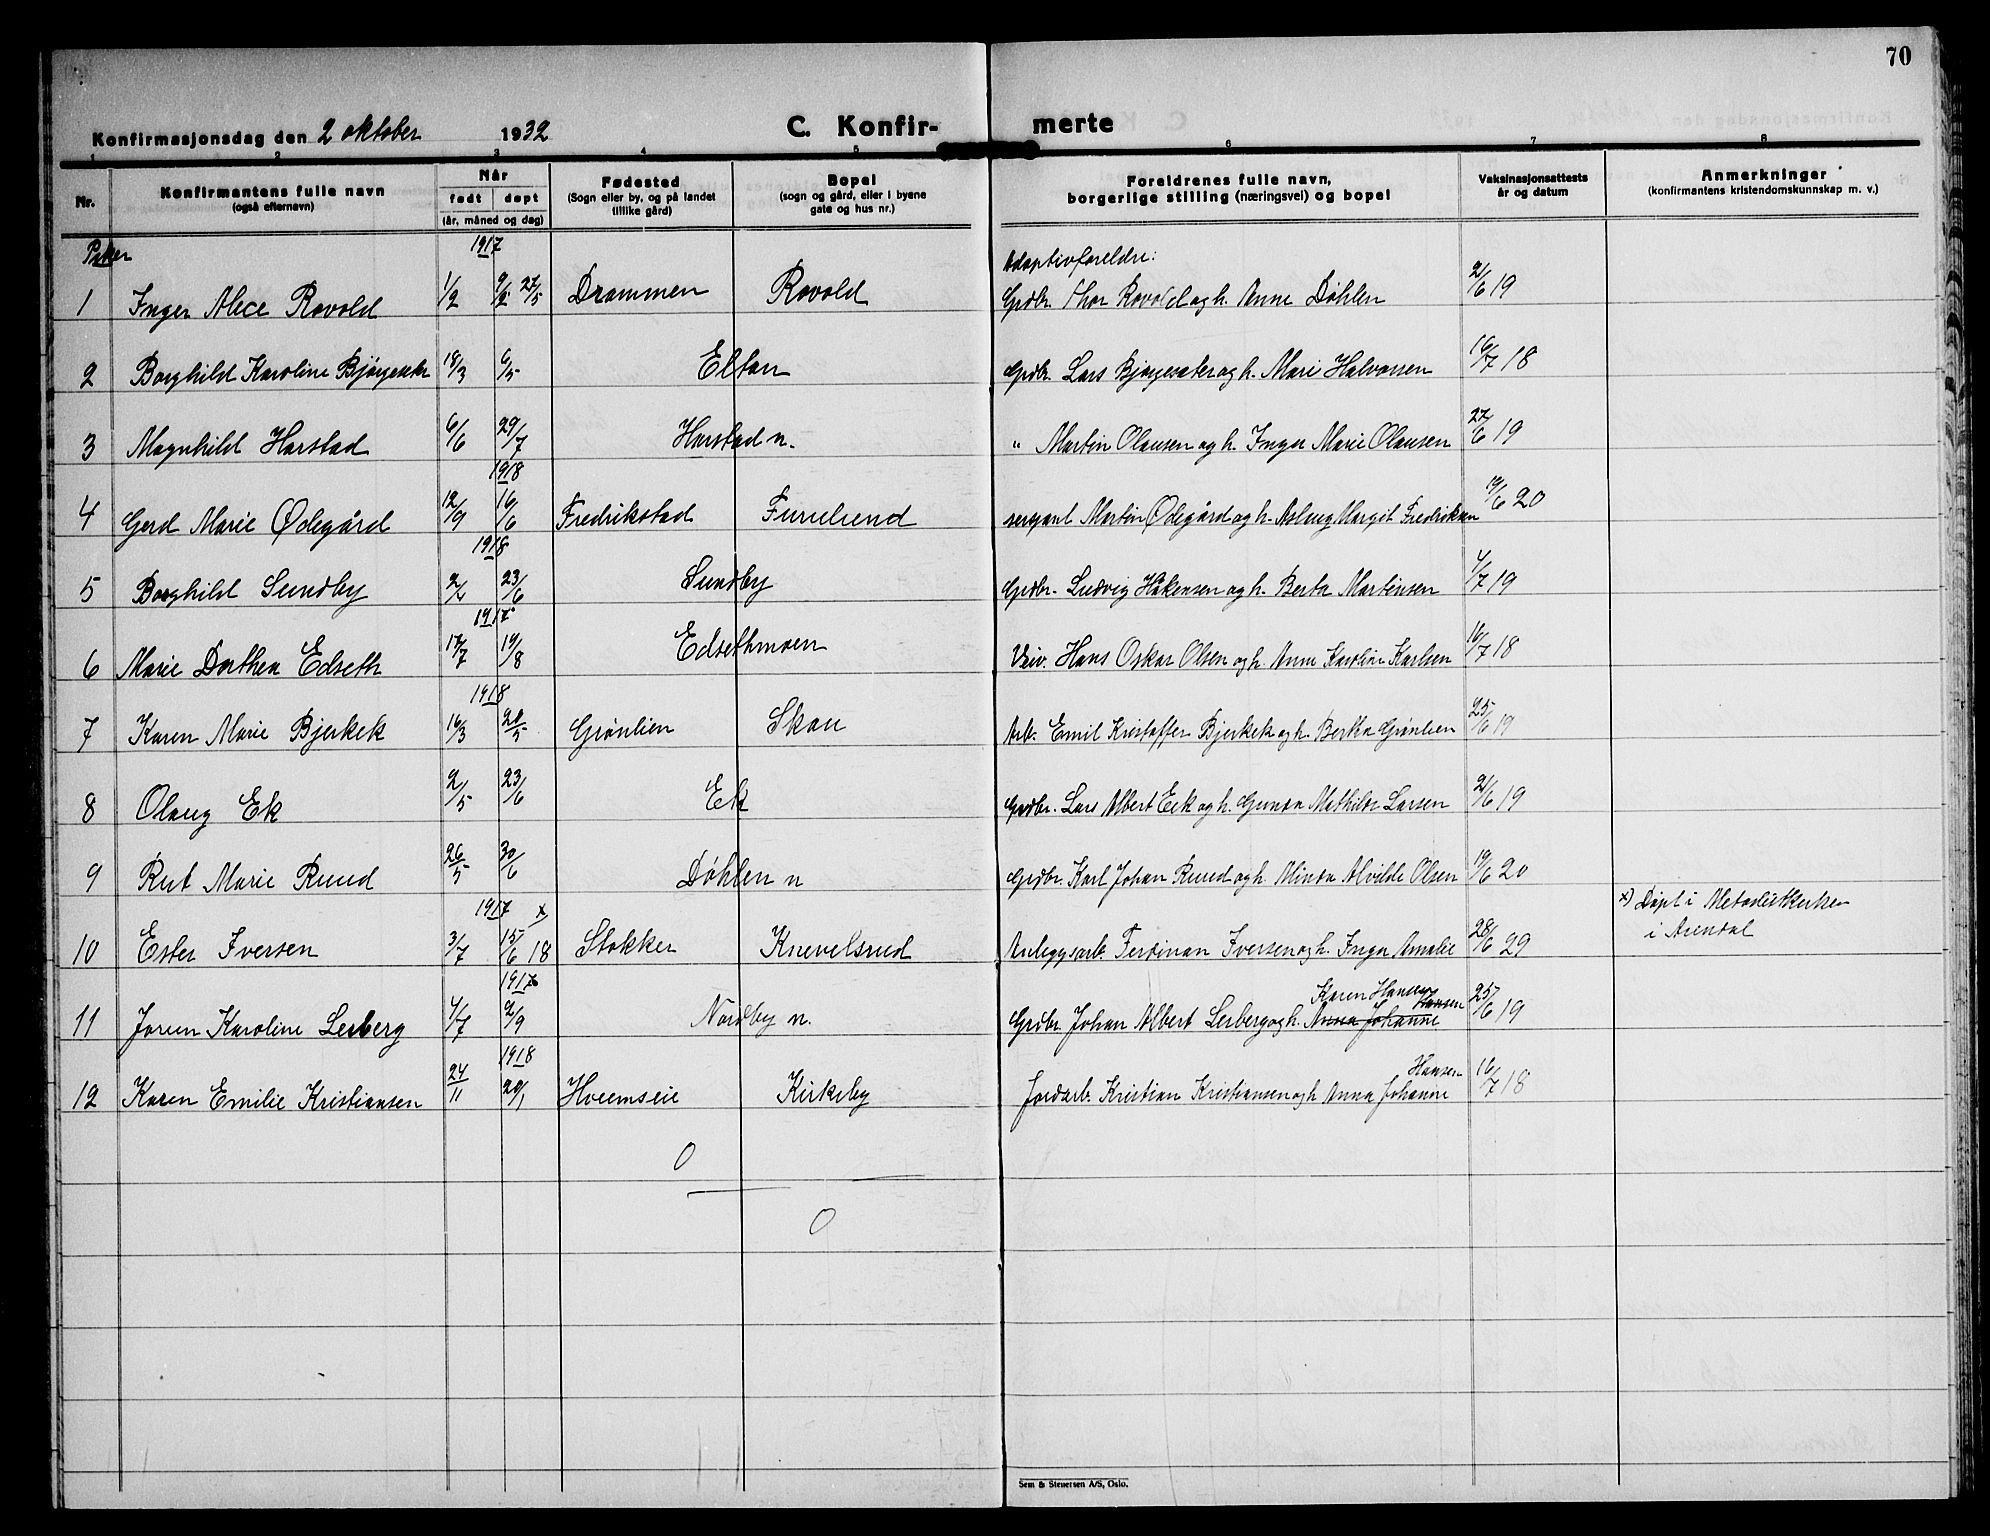 70
Konfirmasjonsdag den 2 oktober 1932 C. Konfir- merte
1 2 3 4 5 6 7 8
Nr. Konfirmantens fulle navn (også efternavn) Når født døpt (år, måned og dag) Fødested (Sogn eller by, og på landet tillike gård) Bopel (sogn og gård, eller i byene gate og hus nr.) Foreldrenes fulle navn, borgerlige stilling (næringsvei) og bopel Vaksinasjonsattests år og datum Anmerkninger (konfirmantens kristendomskunnskap m. v.)
Piker 1917 Adoptivforeldre:
1 Inger Alice Rovold 1/2 27/5 Drammen Rovold Grdbr. Thor Rovold og h. Anne Døhlen 2/6 19
2 Borghild Karoline Bjørgeseter 18/3 6/5 Elton Grdbr. Lars Bjørgeseter og h. Marie Halvorsen 16/7 18
3 Magnhild Harstad 6/6 29/7 Harstad n. " Martin Olausen og h. Inga Marie Olausen 27/6 19
1918
4 Gerd Marie Ødegård 12/9 16/6 Fredrikstad Furulund sersjant Martin Ødegård og h. Aslaug Margit Fredriksen 19/6 20
1918
5 Borghild Sundby 2/4 23/6 Sundby Grdbr. Ludvig Håkensen og h. Berta Martinsen 4/7 19
1917
6 Marie Dorthea Edseth 17/7 19/8 Edsethmoen Veiv. Hans Oskar Olsen og h. Anne Karoline Karlsen 16/7 18
1918
7 Karen Marie Bjerkek 16/3 20/5 Grønlien Skau Arb. Emil Kristoffer Bjerkek og h. Bertha Grønlien 25/6 19
8 Olaug Ek 2/5 23/6 Ek Grdbr. Lars Albert Eek og h. Gunda Mathilde Larsen 2/6 19
9 Rut Marie Ruud 26/5 30/6 Døhlen n Grdbr. Karl Johan Ruud og h. Minda Alvilde Olsen 19/6 20
1917 x x) Døpt i Metodistkirken
10 Ester Iversen 3/7 15/6 18 Stokker Knevelsrud Anleggsarb. Ferdinan Iversen og h. Inga Amalie 28/6 29 i Arendal
1917 Karen Hansen
11 Jorun Karoline Lerberg 4/7 2/9 Nordby n. Grdbr. Johan Albert Lerberg og h. Anna Johanne Hansen 25/6 19
1918 Hansen
12 Karen Emilie Kristiansen 24/11 20/1 Hvemseie Kirkeby Jordarb. Kristian Kristiansen og h Anna Johanne 16/7 18
0
0
Sem & Stenersen A/S, Oslo.